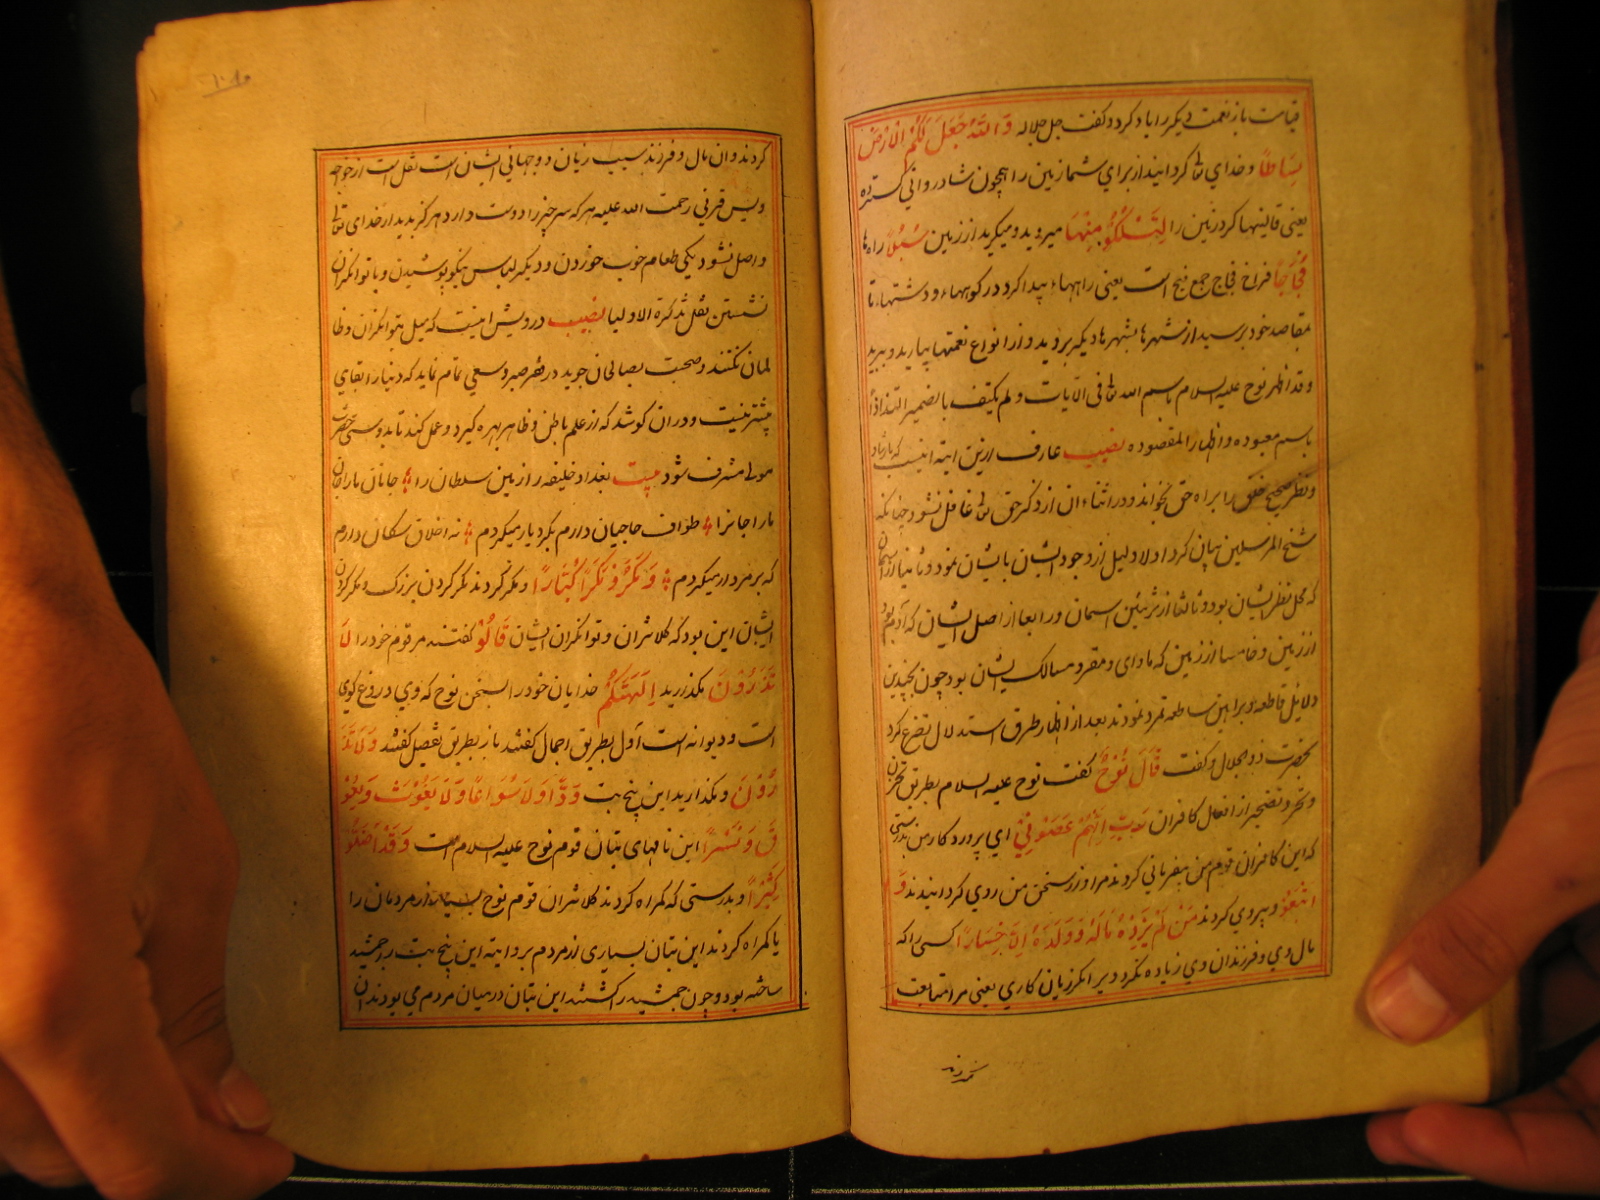 قیامت باز نعمت دیگر را یاد کرد و گفت جل جلاله وَاللّٰهُ جَعَلَ لَكُمُ الْاَرْضَ
بِسَاطًا و خدای تعالی گردانید از برای شما زمین را همچون شادروانی گسترده
یعنی قالینها کرد زمین را لِتَسْلُكُوْا مِنْهَا میروید و میگیرید از زمین سُبُلًا راه ها
فِجَاجًا فراخ فجاج جمع فج است یعنی راهها پیدا کرد در کوهها و دشتها تا
بمقاصد خود برسید از شهرها بشهرها دیگر بروید و از انواع نعمتها بیارید و ببرید
و قد اظهر نوح علیه السلام باسم الله تعالی فی الآیات و لم یکتف بالضمیر التذاذا
باسم معبوده و اظهارا لمقصوده نصیب عارف ازین آیته اینست که بارشاد
و نظر صحیح خلق را براه حق بخواند و در اثناء آن از ذکر حق تعالی غافل نشود چنانکه
شیخ المرسلین بیان کرد اولا دلیل از وجود ایشان بایشان نمود و ثانیا از آسمان
که محل نظر ایشان بود و ثالثا از تزئین اسمان و رابعا از اصل ایشان که آدم بود
از زمین و خامسا از زمین که ماوای و مقر و مسالک ایشان بود چون بچندین
دلایل قاطعه و براهین ساطعه تمرد نمودند بعد از اظهار طرق استدلال تضرع کرد
بحضرت ذوالجلال و گفت قَالَ نُوْحٌ گفت نوح علیه السلام بطریق تحزن
و تحیر و تضجر از افعال کافران رَبِّ اِنَّهُمْ عَصَوْنِیْ ای پروردکار من بدرستی
که این کافران قوم من بیفرمانی کردند مرا و از سخن من روی گردانیدند وَ
اتَّبَعُوْا و پیروی کردند مَنْ لَمْ یَزِدْهُ مَالُهُ وَ وَلَدُهُ اِلَّا خَسَارًا کسی را که
مال وی و فرزندان وی زیاده نکرد ویرا مگر زیان کاری یعنی مر متابعت
کردند
کردند و آن مال و فرزند سبب زیان دوجهانی ایشان است نقل است از خواجه
ویس قرنی رحمت الله علیه هر که سه چیز را دوست دارد هرگز بدیدار خدای تعالی
واصل نشود یکی طعام خوب خوردن و دیگر لباس نیکو پوشیدن و با توانگران
نشستن نقل تذکرة الاولیا نصیب درویش اینست که میل بتوانگران و ظا
لمان نکنند و صحبت بصالحان جوید در فقر صبر و سعی تمام نماید که دنیا را بقای
بیشتر نیست و در آن کوشد که از علم باطن و ظاهر بهره گیرد و عمل کند تا بدوستی حضرت
مولی مشرف شود بیت بغداد خلیفه را زمین سلطان را جانان یاران
یار اجانرا طواف حاجیان دارم بگرد یار میگردم نه اخلاق سکان دارم
که بر مردار میگردم وَ مَكَرُوْا مَكْرًا كُبَّارًا و مکر کردند مکر کردن بزرگ و مکر کردن
ایشان این بود که کلانتران و توانگران ایشان قَالُوْا گفتند مر قوم خود را لَا
تَذَرُوْنَ مگذارید اٰلِهَتَكُمْ خدایان خود را بسخن نوح که وی دروغ گوی
است و دیوانه است اول بطریق اجمال گفتند باز بطریق تفصیل گفتند وَ لَا تَذَ
رُوْنَ و مگذارید این پنج بت وَدًّا وَ لَا سُوَاعًا وَ لَا یَغُوْثَ وَ یَعُوْ
قَ وَ نَسْرًا این نامهای بتان قوم نوح علیه السلام است وَ قَدْ اَضَلُّوْا
كَثِیْرًا و بدرستی که گمراه کردند کلانتران قوم نوح بسیار از مردمان را
یا گمراه کردند این بتان بسیاری از مردم بروایته این پنج بت را جمشید
ساخته بود و چون جمشید را کشتند این بتان در میان مردم می بودند آن